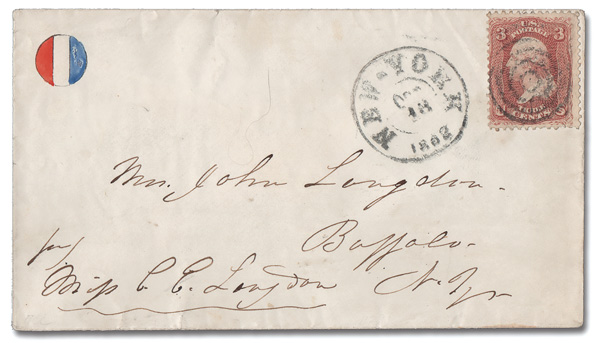 3 U.S. 3
POSTAGE
CENTS
NEW-YORK
18
1862
Mrs. John Langdon.
Buffalo.
for
Miss C. C. Langdon N. Y.